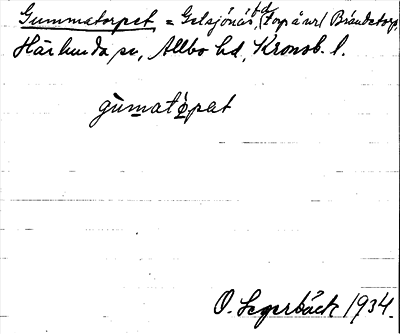 Gummatorpet = Gelsjönäs, (Torp å ur) Brandstorp,
Härlunda sn, Allbo hd, Kronob. l.
gùmatòpat
O. Segerbäck 1934.